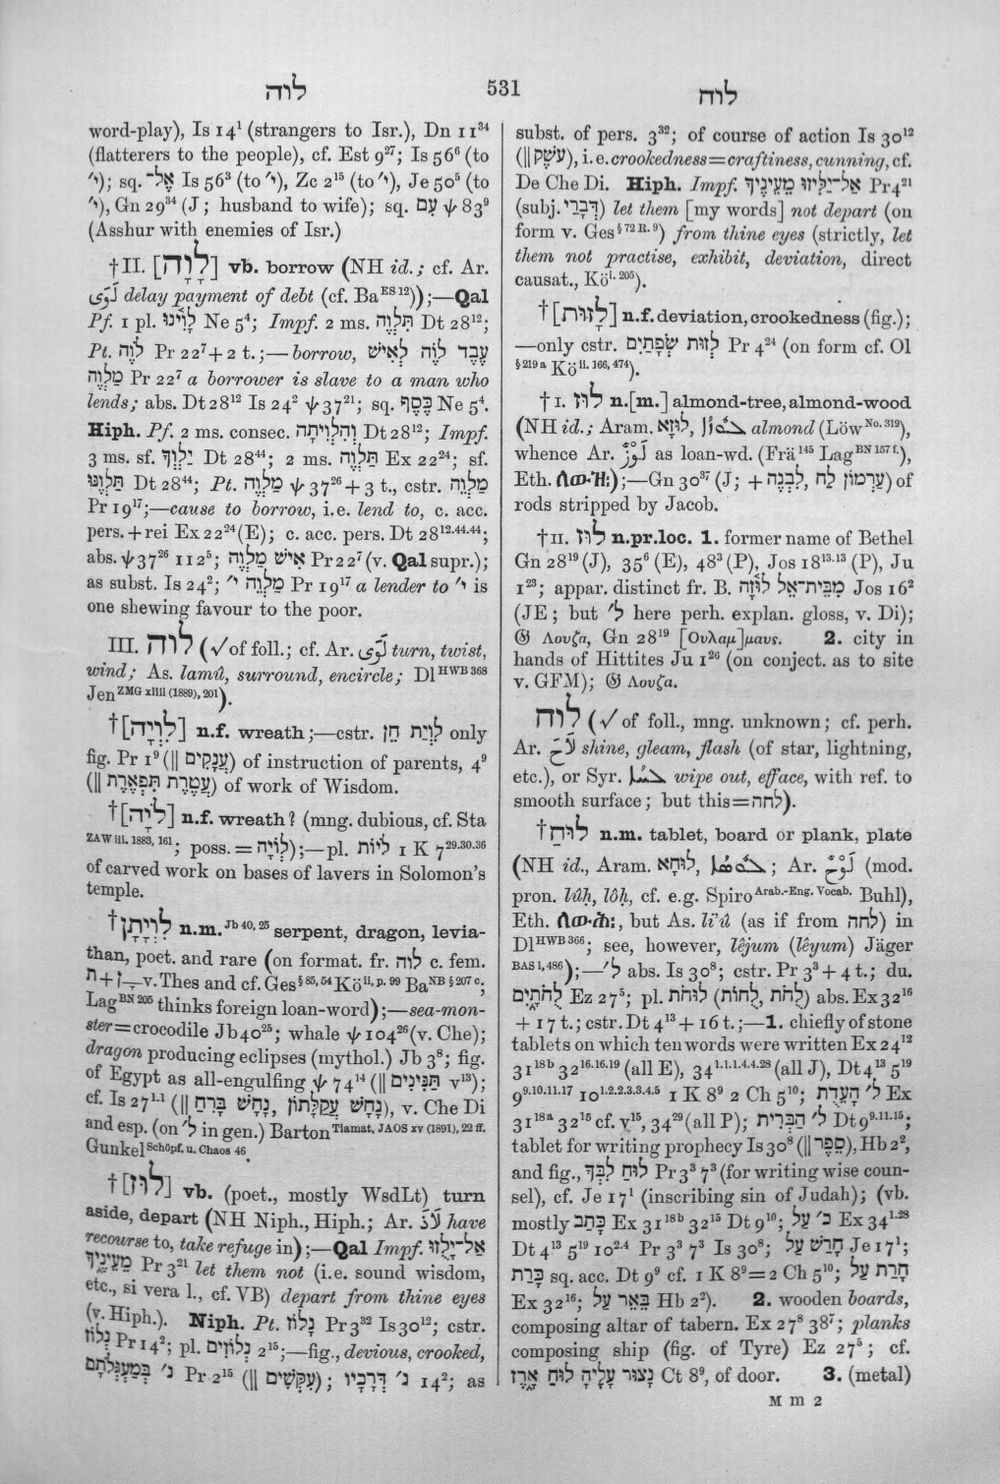 לוה
531
לוח
word-play), Is 14¹ (strangers to Isr.), Dn 11³⁴
(flatterers to the people), cf. Est 9²⁷; Is 56⁶ (to
׳י); sq. אֶל־ Is 56³ (to ׳י), Zc 2¹⁵ (to ׳י), Je 50⁵ (to
׳י), Gn 29³⁴ (J; husband to wife); sq. עִם ψ 83⁹
(Asshur with enemies of Isr.)
†II. [לָוָה] vb. borrow (NH id.; cf. Ar.
لَوَى delay payment of debt (cf. Ba ES 12));—Qal
Pf. 1 pl. לָוִינוּ Ne 5⁴; Impf. 2 ms. תִּלְוֶה Dt 28¹²;
Pt. לֹוֶה Pr 22⁷ + 2 t.;—borrow, עֶבֶד לֹוֶה לְאִישׁ
מַלְוֶה Pr 22⁷ a borrower is slave to a man who
lends; abs. Dt 28¹² Is 24² ψ 37²¹; sq. כֶּסֶף Ne 5⁴.
Hiph. Pf. 2 ms. consec. וְהִלְוִיתָה Dt 28¹²; Impf.
3 ms. sf. יַלְוְךָ Dt 28⁴⁴; 2 ms. תַּלְוֶה Ex 22²⁴; sf.
תַּלְוֶנּוּ Dt 28⁴⁴; Pt. מַלְוֶה ψ 37²⁶ + 3 t., cstr. מַלְוֵה
Pr 19¹⁷;—cause to borrow, i.e. lend to, c. acc.
pers. + rei Ex 22²⁴ (E); c. acc. pers. Dt 28¹²·⁴⁴·⁴⁴;
abs. ψ 37²⁶ 112⁵; אִישׁ מַלְוֶה Pr 22⁷ (v. Qal supr.);
as subst. Is 24²; ׳מַלְוֵה י Pr 19¹⁷ a lender to ׳י is
one shewing favour to the poor.
III. לוה (√ of foll.; cf. Ar. لَوَى turn, twist,
wind; As. lamû, surround, encircle; Dl HWB 368
Jen ZMG xliii (1889), 201).
†[לִוְיָה] n.f. wreath;—cstr. לִוְיַת חֵן only
fig. Pr 1⁹ (|| עֲנָקִים) of instruction of parents, 4⁹
(|| עֲטֶרֶת תִּפְאֶרֶת) of work of Wisdom.
†[לֹיָה] n.f. wreath? (mng. dubious, cf. Sta
ZAW iii. 1883, 161; poss. = לְוִיָּה);—pl. לֹיוֹת 1 K 7²⁹·³⁰·³⁶
of carved work on bases of lavers in Solomon's
temple.
†לִוְיָתָן n.m. Jb 40, 25 serpent, dragon, levia-
than, poet. and rare (on format. fr. לוה c. fem.
ת + ־ָן v. Thes and cf. Ges § 85, 54 Kö ii, p. 99 Ba NB § 207 c,
Lag BN 205 thinks foreign loan-word);—sea-mon-
ster = crocodile Jb 40²⁵; whale ψ 104²⁶ (v. Che);
dragon producing eclipses (mythol.) Jb 3⁸; fig.
of Egypt as all-engulfing ψ 74¹⁴ (|| תַּנִּינִים v¹³);
cf. Is 27¹·¹ (|| נָחָשׁ עֲקַלָּתוֹן, נָחָשׁ בָּרִחַ), v. Che Di
and esp. (on ׳ל in gen.) Barton Tiamat, JAOS xv (1891), 22 ff.
Gunkel Schöpf. u. Chaos 46.
†[לוּז] vb. (poet., mostly WsdLt) turn
aside, depart (NH Niph., Hiph.; Ar. لَاذَ have
recourse to, take refuge in);—Qal Impf. אַל־יָלֻזוּ
מֵעֵינֶיךָ Pr 3²¹ let them not (i.e. sound wisdom,
etc., si vera l., cf. VB) depart from thine eyes
(v. Hiph.). Niph. Pt. נָלוֹז Pr 3³² Is 30¹²; cstr.
נְלוֹז Pr 14²; pl. נְלוֹזִים 2¹⁵;—fig., devious, crooked,
נ׳ בְּמַעְגְּלֹתָם Pr 2¹⁵ (|| עִקְּשִׁים); נ׳ דְּרָכָיו 14²; as
subst. of pers. 3³²; of course of action Is 30¹²
(|| עֹשֶׁק), i.e. crookedness = craftiness, cunning, cf.
De Che Di. Hiph. Impf. אַל־יַלִּיזוּ מֵעֵינֶיךָ Pr 4²¹
(subj. דְּבָרַי) let them [my words] not depart (on
form v. Ges § 72 R. 9) from thine eyes (strictly, let
them not practise, exhibit, deviation, direct
causat., Kö i. 205).
†[לָזוּת] n.f. deviation, crookedness (fig.);
—only cstr. לְזוּת שְׂפָתַיִם Pr 4²⁴ (on form cf. Ol
§ 219 a Kö ii. 166, 474).
†I. לוּז n.[m.] almond-tree, almond-wood
(NH id.; Aram. לוּזָא, ܠܘܙܐ almond (Löw No. 319),
whence Ar. لَوْزٌ as loan-wd. (Frä 145 Lag BN 157 f.),
Eth. ለውዝ፡);—Gn 30³⁷ (J; + לִבְנֶה, לַח עַרְמוֹן) of
rods stripped by Jacob.
†II. לוּז n.pr.loc. 1. former name of Bethel
Gn 28¹⁹ (J), 35⁶ (E), 48³ (P), Jos 18¹³·¹³ (P), Ju
1²³; appar. distinct fr. B. מִבֵּית־אֵל לוּזָה Jos 16²
(JE; but ׳ל here perh. explan. gloss, v. Di);
𝔊 Λουζα, Gn 28¹⁹ [Ουλαμ]μαυς. 2. city in
hands of Hittites Ju 1²⁶ (on conject. as to site
v. GFM); 𝔊 Λουζα.
לוח (√ of foll., mng. unknown; cf. perh.
Ar. لَاحَ shine, gleam, flash (of star, lightning,
etc.), or Syr. ܠܚܐ wipe out, efface, with ref. to
smooth surface; but this = לחה).
†לוּחַ n.m. tablet, board or plank, plate
(NH id., Aram. לוּחָא, ܠܘܚܐ; Ar. لَوْحٌ (mod.
pron. lûḥ, lôḥ, cf. e.g. Spiro Arab.-Eng. Vocab. Buhl),
Eth. ለውሕ፡, but As. li'û (as if from לחה) in
Dl HWB 366; see, however, lêjum (lêyum) Jäger
BAS i, 486);—׳ל abs. Is 30⁸; cstr. Pr 3³ + 4 t.; du.
לֻחֹתָיִם Ez 27⁵; pl. לוּחֹת (לֻחוֹת, לֻחֹת) abs. Ex 32¹⁶
+ 17 t.; cstr. Dt 4¹³ + 16 t.;—1. chiefly of stone
tablets on which ten words were written Ex 24¹²
31¹⁸ᵇ 32¹⁶·¹⁶·¹⁹ (all E), 34¹·¹·¹·⁴·⁴·²⁸ (all J), Dt 4¹³ 5¹⁹
9⁹·¹⁰·¹¹·¹⁷ 10¹·²·²·³·³·⁴·⁵ 1 K 8⁹ 2 Ch 5¹⁰; ל׳ הָעֵדֻת Ex
31¹⁸ᵃ 32¹⁵ cf. v¹⁵, 34²⁹ (all P); ל׳ הַבְּרִית Dt 9⁹·¹¹·¹⁵;
tablet for writing prophecy Is 30⁸ (|| סֵפֶר), Hb 2²,
and fig., לוּחַ לִבֶּךָ Pr 3³ 7³ (for writing wise coun-
sel), cf. Je 17¹ (inscribing sin of Judah); (vb.
mostly כָּתַב Ex 31¹⁸ᵇ 32¹⁵ Dt 9¹⁰; כ׳ עַל Ex 34¹·²⁸
Dt 4¹³ 5¹⁹ 10²·⁴ Pr 3³ 7³ Is 30⁸; חָרַשׁ עַל Je 17¹;
כָּרַת sq. acc. Dt 9⁹ cf. 1 K 8⁹ = 2 Ch 5¹⁰; חָרַת עַל
Ex 32¹⁶; בֵּאֵר עַל Hb 2²). 2. wooden boards,
composing altar of tabern. Ex 27⁸ 38⁷; planks
composing ship (fig. of Tyre) Ez 27⁵; cf.
נָצוּר עָלֶיהָ לוּחַ אָרֶז Ct 8⁹, of door. 3. (metal)
M m 2